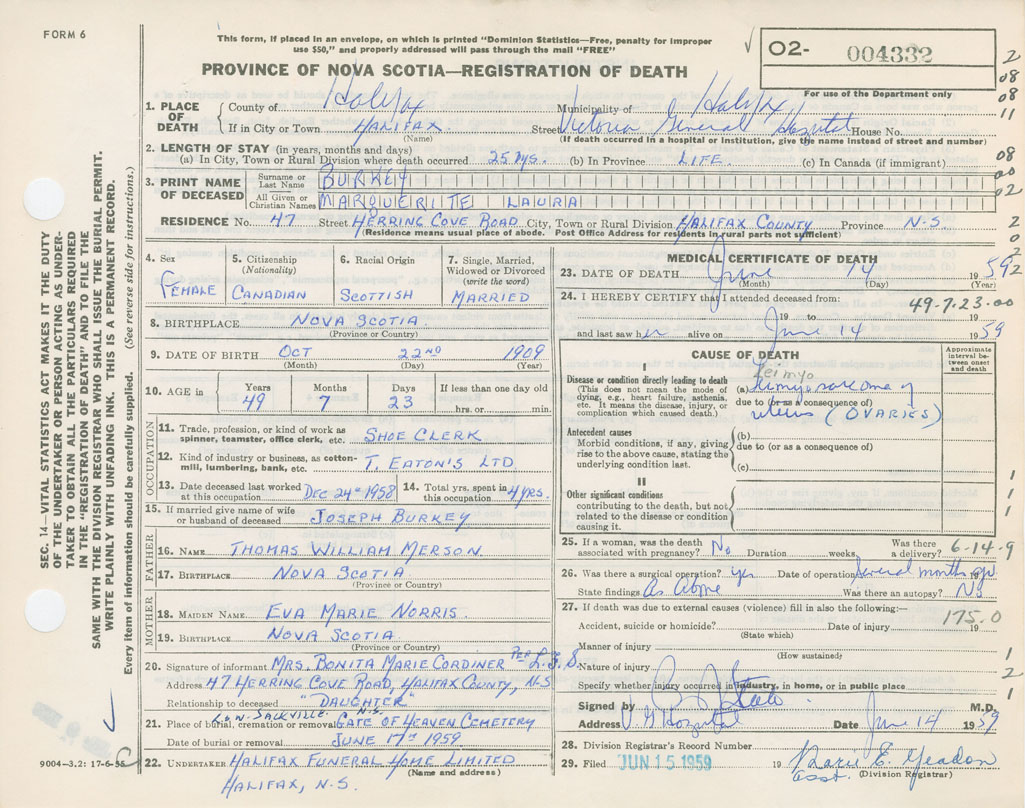 FORM 6
This form, if placed in an envelope, on which is printed "Dominion Statistics—Free, penalty for improper
use $50," and properly addressed will pass through the mail "FREE"
O2- 004332
For use of the Department only
PROVINCE OF NOVA SCOTIA—REGISTRATION OF DEATH
1. PLACE OF DEATH
County of Halifax Municipality of Halifax
If in City or Town HALIFAX. Street Victoria General Hospital House No.
(Name) (If death occurred in a hospital or institution, give the name instead of street and number)
2. LENGTH OF STAY (in years, months and days)
(a) In City, Town or Rural Division where death occurred 25 yrs. (b) In Province LIFE. (c) In Canada (if immigrant)
3. PRINT NAME OF DECEASED
Surname or Last Name BURKEY
All Given or Christian Names MARGUERITE LAURA
RESIDENCE No. 47 Street HERRING COVE ROAD City, Town or Rural Division HALIFAX COUNTY Province N.S.
(Residence means usual place of abode. Post Office Address for residents in rural parts not sufficient)
4. Sex FEMALE
5. Citizenship (Nationality) CANADIAN
6. Racial Origin SCOTTISH
7. Single, Married, Widowed or Divorced (write the word) MARRIED
8. BIRTHPLACE NOVA SCOTIA.
(Province or Country)
9. DATE OF BIRTH OCT 22ND 1909
(Month) (Day) (Year)
10. AGE in Years 49 Months 7 Days 23 If less than one day old hrs. or min.
OCCUPATION
11. Trade, profession, or kind of work as spinner, teamster, office clerk, etc. SHOE CLERK
12. Kind of industry or business, as cotton-mill, lumbering, bank, etc. T. EATON'S LTD.
13. Date deceased last worked at this occupation DEC 24th 1958
14. Total yrs. spent in this occupation 4 YRS.
15. If married give name of wife or husband of deceased JOSEPH BURKEY
FATHER
16. NAME THOMAS WILLIAM MERSON.
17. BIRTHPLACE NOVA SCOTIA
(Province or Country)
MOTHER
18. MAIDEN NAME EVA MARIE NORRIS.
19. BIRTHPLACE NOVA SCOTIA.
(Province or Country)
20. Signature of informant MRS. BONITA MARIE CORDINER PER L.F.S.
Address 47 HERRING COVE ROAD, HALIFAX COUNTY, N.S
Relationship to deceased "DAUGHTER"
SACKVILLE N.S.
21. Place of burial, cremation or removal GATE OF HEAVEN CEMETERY
Date of burial or removal JUNE 17th 1959.
22. UNDERTAKER HALIFAX FUNERAL HOME LIMITED
(Name and address)
HALIFAX, N.S.
9004—3,2: 17-6-55
MEDICAL CERTIFICATE OF DEATH
23. DATE OF DEATH June 14 1959
(Month) (Day) (Year)
24. I HEREBY CERTIFY that I attended deceased from: 49-7-23-00
19 to 19
and last saw her alive on June 14 1959
CAUSE OF DEATH
Approximate interval between onset and death
I
Disease or condition directly leading to death
(This does not mean the mode of dying, e.g., heart failure, asthenia, etc. It means the disease, injury, or complication which caused death.)
Leimyo
(a) Limyosarcoma of
due to (or as a consequence of)
uterus (OVARIES)
Antecedent causes
Morbid conditions, if any, giving rise to the above cause, stating the underlying condition last.
(b)
due to (or as a consequence of)
(c)
II
Other significant conditions
contributing to the death, but not related to the disease or condition causing it.
25. If a woman, was the death associated with pregnancy? No Duration weeks. Was there a delivery? 6-14-9
26. Was there a surgical operation? yes Date of operation Several months ago 19
State findings As Above Was there an autopsy? No
27. If death was due to external causes (violence) fill in also the following:—
175.0
Accident, suicide or homicide? Date of injury 19
(State which)
Manner of injury
(How sustained)
Nature of injury
Specify whether injury occurred in industry, in home, or in public place
Signed by M.D.
Address V. G Hospital Date June 14 1959
28. Division Registrar's Record Number
29. Filed JUN 15 1959 19 Marie E. Yeadon
Asst. (Division Registrar)
SEC. 14—VITAL STATISTICS ACT MAKES IT THE DUTY
OF THE UNDERTAKER OR PERSON ACTING AS UNDER-
TAKER TO OBTAIN ALL THE PARTICULARS REQUIRED
IN THE "REGISTRATION OF DEATH" AND TO FILE THE
SAME WITH THE DIVISION REGISTRAR WHO SHALL ISSUE THE BURIAL PERMIT.
WRITE PLAINLY WITH UNFADING INK. THIS IS A PERMANENT RECORD.
Every item of information should be carefully supplied. (See reverse side for instructions.)
2
08
08
11
08
00
02
2
0
2
2
1
1
1
1
2
1